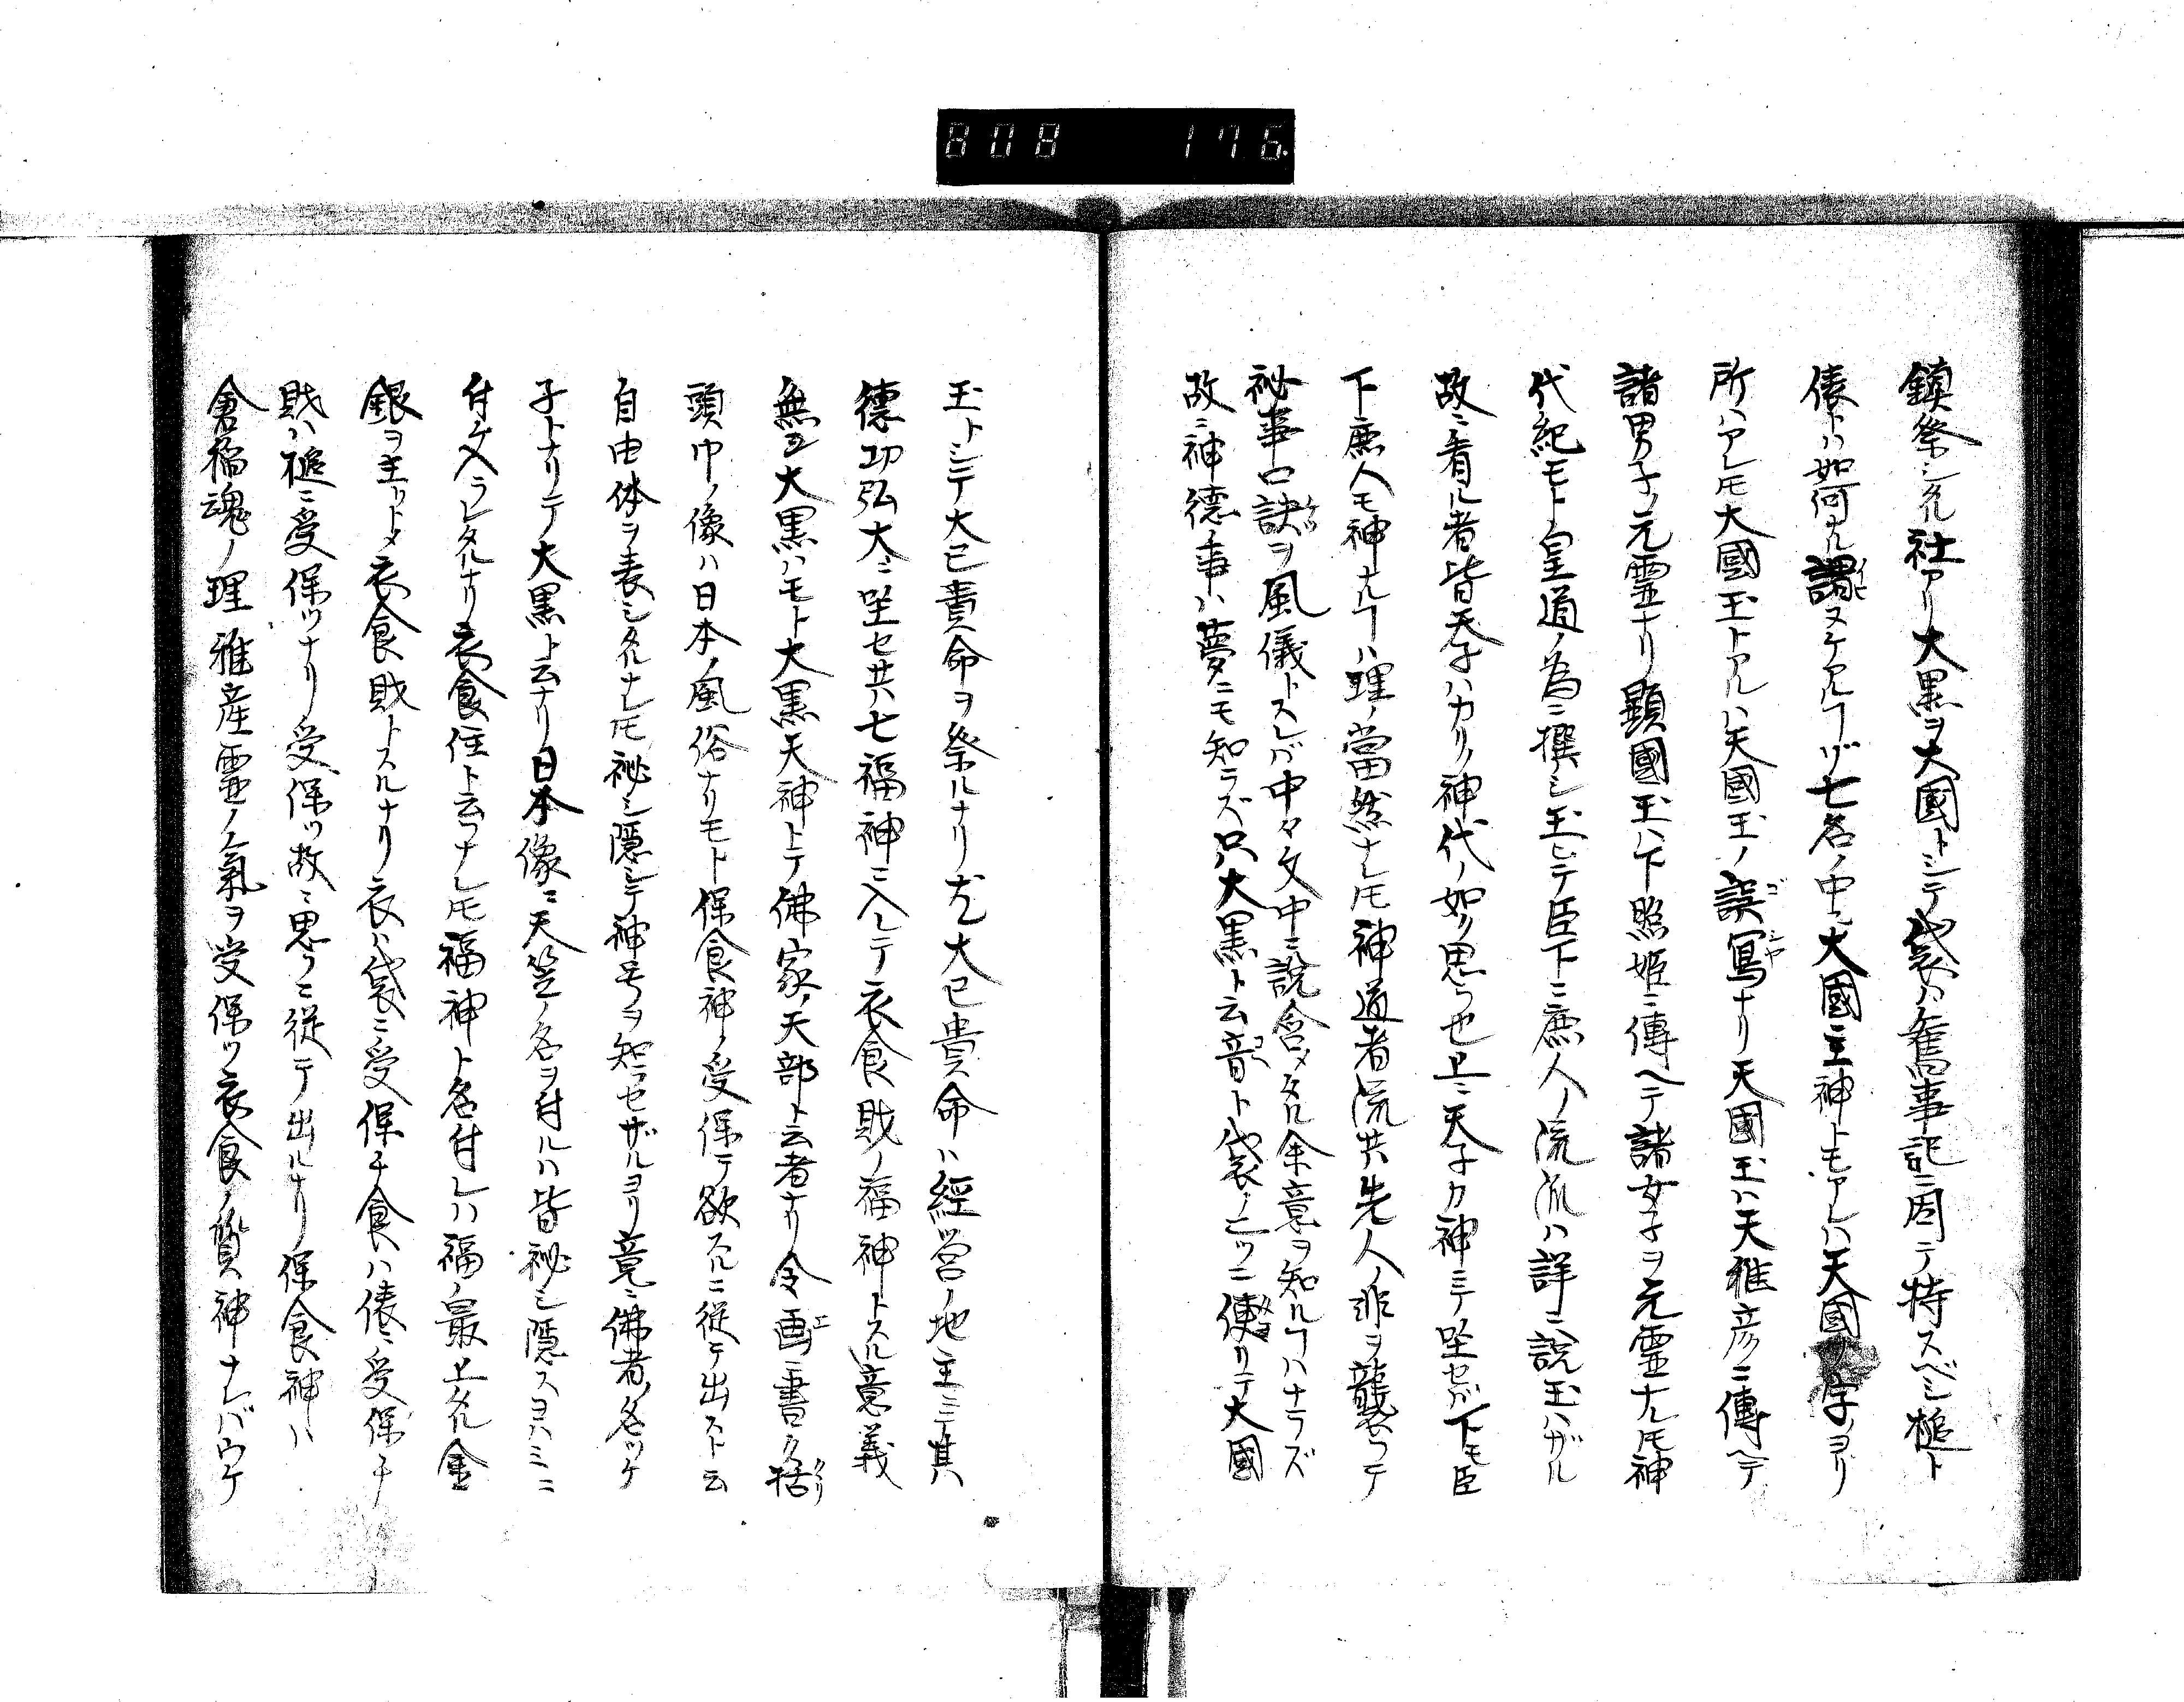 808 176
鎮祭シタル社アリ大黒ヲ大國トシテ袋ハ舊事記ニ因テ特スベシ槌ト
俵トハ如何ナル謂ヌケアルヿゾ七名ノ中ニ大國主神トモアレハ天國ノ字ノヨリ
所ハアレ𪜈大國玉トアルハ天國玉ノ誤寫ナリ天國玉ハ天稚彦ニ傳ヘテ
諸男子ノ元霊ナリ顕國玉ハ下照姫ニ傳ヘテ諸女子ヲ元霊ナレ𪜈神
代紀モト皇道ノ為ニ撰シ玉ヒテ臣下ニ庶人ノ流派ハ詳ニ説玉ハザル
故ニ看ル者皆天子ハカリノ神代ノ如ク思ラ也上ニ天子カ神ニテ坐セバ下モ臣
下庶人モ神ナルヿハ理ノ當然ナレ𪜈神道者流共先人ノ非ヲ襲フテ
祕事口訣ヲ風儀トスレバ中々文中ニ説含メタル余意ヲ知ルヿハナラズ
故ニ神德ノ事ハ夢ニモ知ラズ只大黒ト云音ト袋ノ二ツニ便リテ大國
玉トシテ大己貴命ヲ祭ルナリ尤大己貴命ハ經営ノ地主ニテ其
德功弘大ニ坐セ共七福神ニ入レテ衣食財ノ福神トスル意義
無シ大黒ハモト大黒天神トテ佛家ノ天部ト云者ナリ今画ニ書ク括
頭巾ノ像ハ日本ノ風俗ナリモト保食神ノ受保テ欲スルニ従テ出スト云
自由体ヲ表シタルナレ𪜈祕シ隱シテ神号ヲ知ラセザルヨリ竟ニ佛者ノ名ツケ
子トナリテ大黒ト云ナリ日本像ニ天竺ノ名ヲ付ルハ皆祕シ隱スヨハミニ
付ケ入ラレタルナリ衣食住ト云フナレ𪜈福神ト名付レハ福ノ最上タル金
銀ヲ主リトメ衣食財トスルナリ衣ハ袋ニ受保チ食ハ俵ニ受保チ
財ハ槌ニ受保ツナリ受保ツ故ニ思フニ従テ出ルナリ保食神ハ
倉稲魂ノ理稚産霊ノ氣ヲ受保ツ衣食ノ質神ナレバウケ